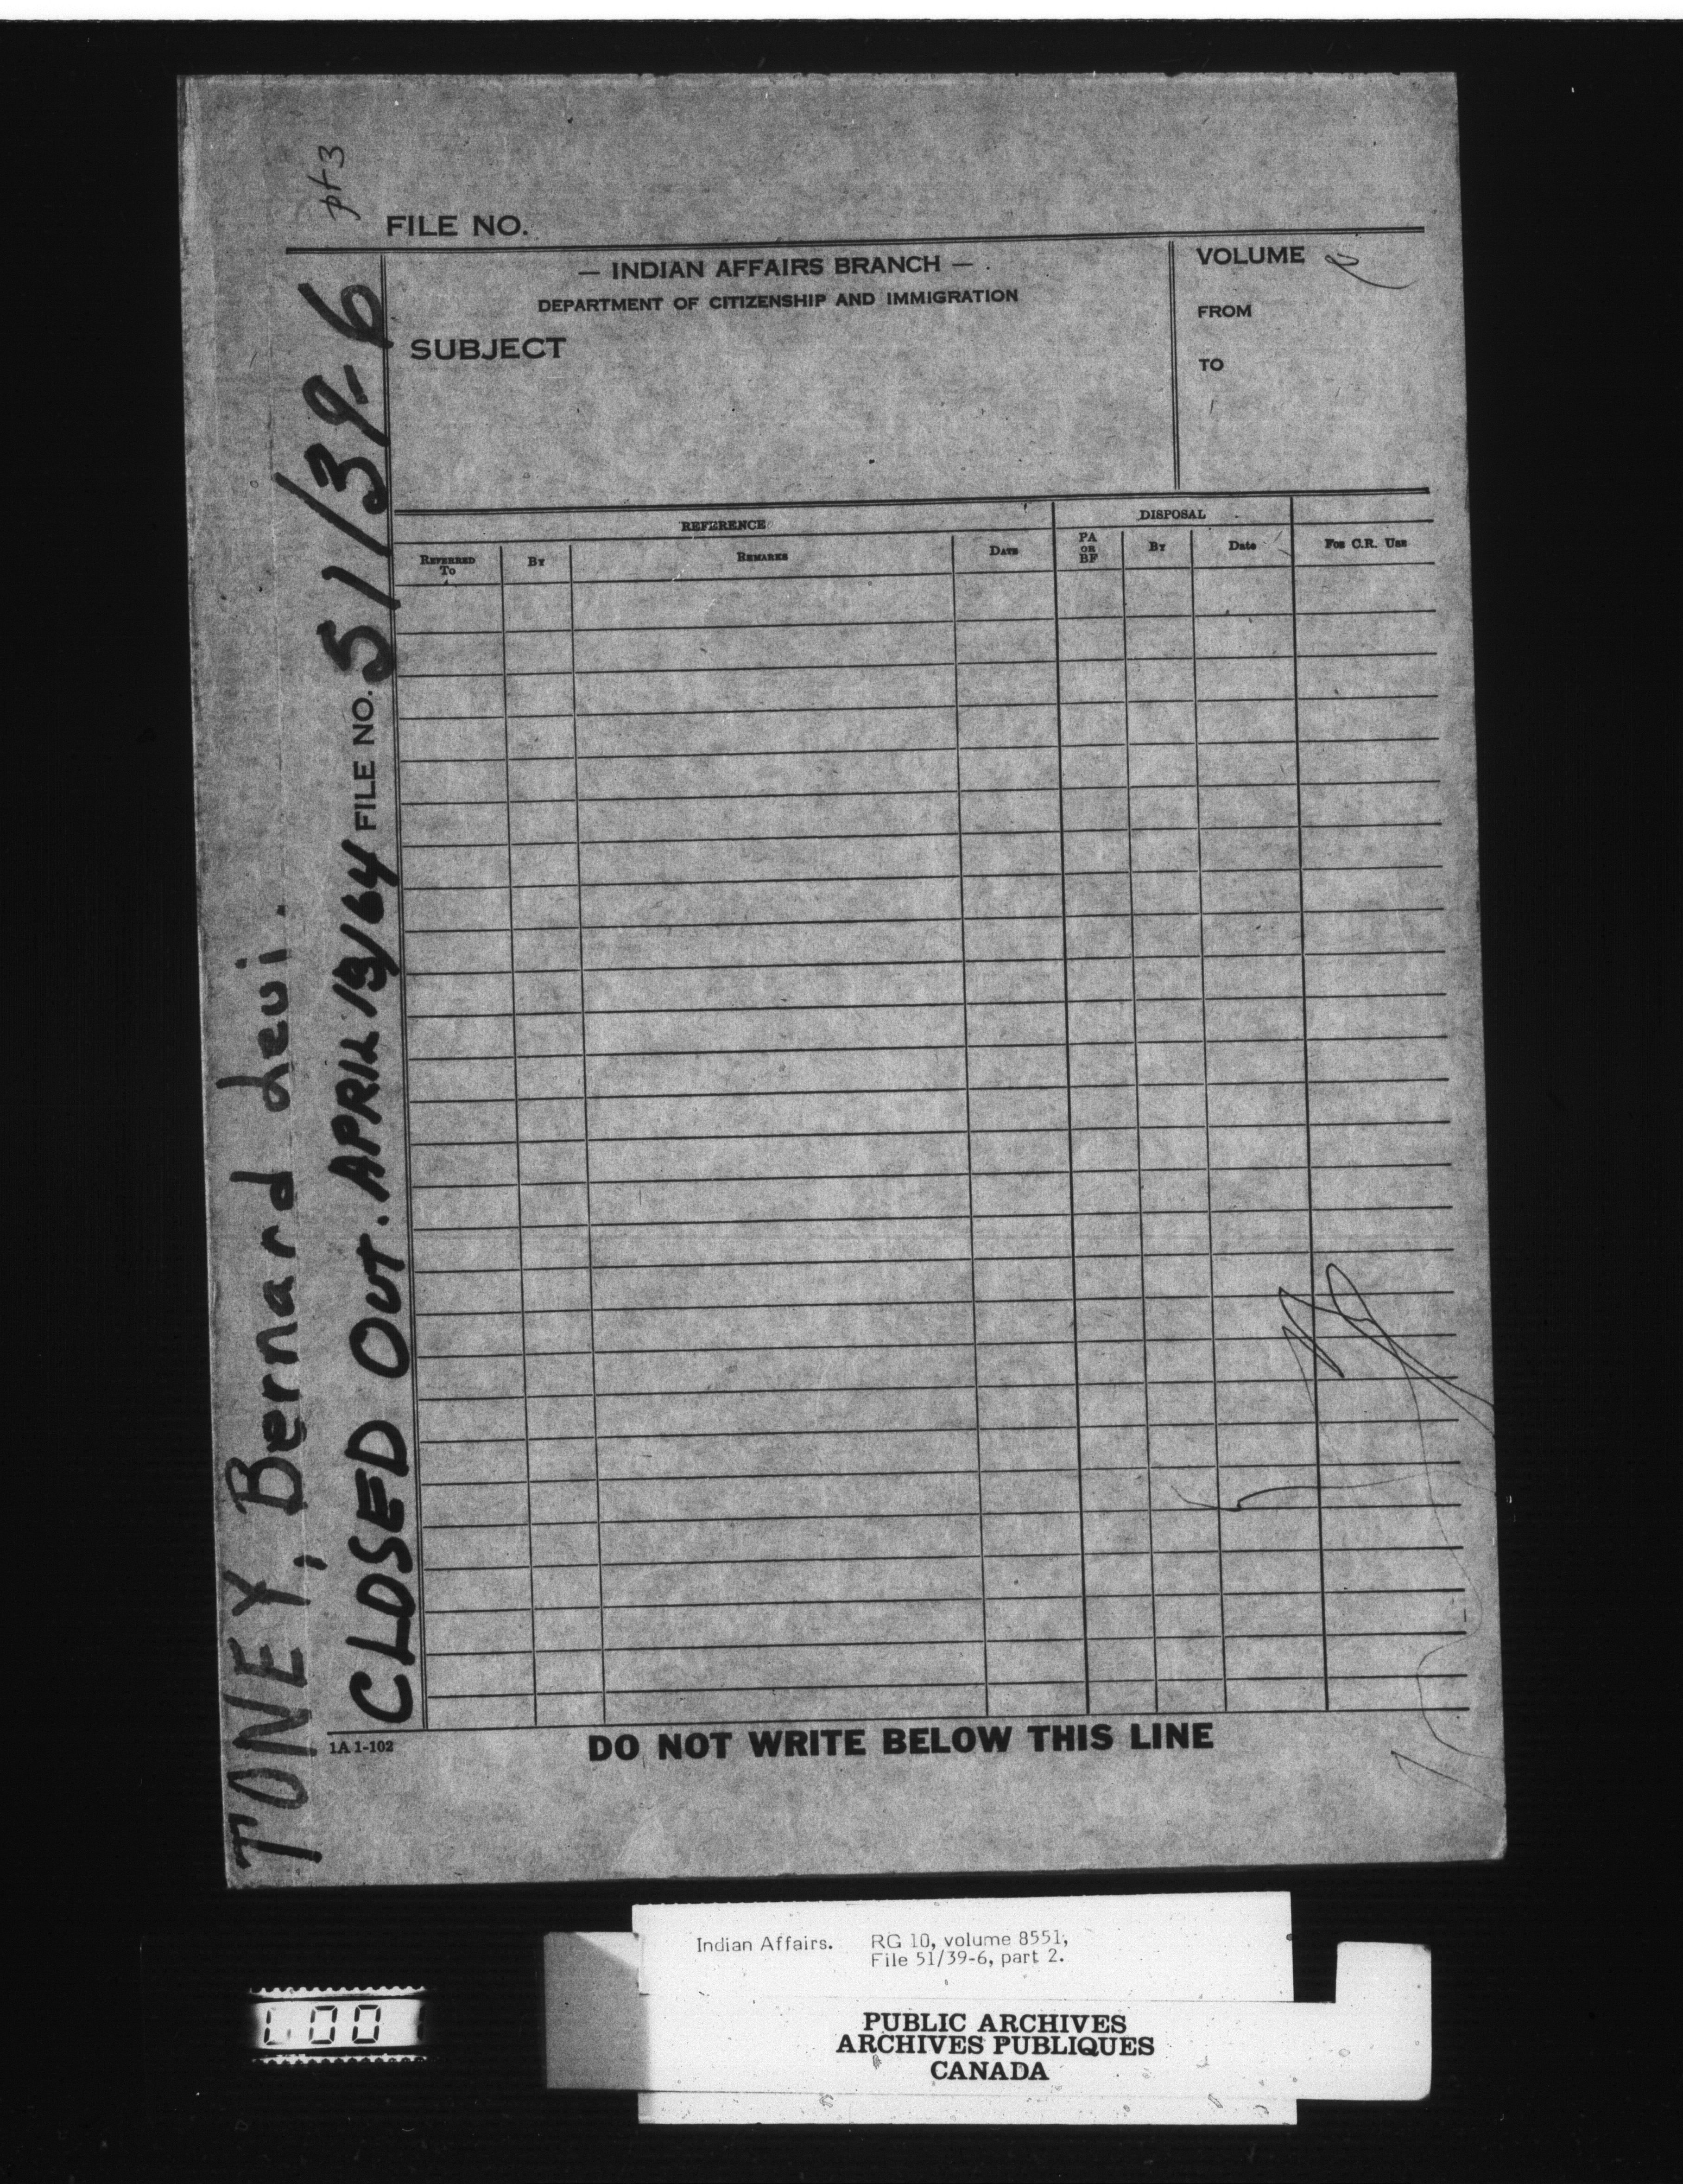 pt 3
FILE NO.
— INDIAN AFFAIRS BRANCH —
DEPARTMENT OF CITIZENSHIP AND IMMIGRATION
SUBJECT
VOLUME 2
FROM
TO
REFERENCE
DISPOSAL
REFERRED TO
BY
REMARKS
DATE
PA OR BF
BY
Date
FOR C.R. USE
TONEY, Bernard Levi.
CLOSED OUT. APRIL 13/64 FILE NO. 51/39-6
1A 1-102
DO NOT WRITE BELOW THIS LINE
Indian Affairs. RG 10, volume 8551,
File 51/39-6, part 2.
PUBLIC ARCHIVES
ARCHIVES PUBLIQUES
CANADA